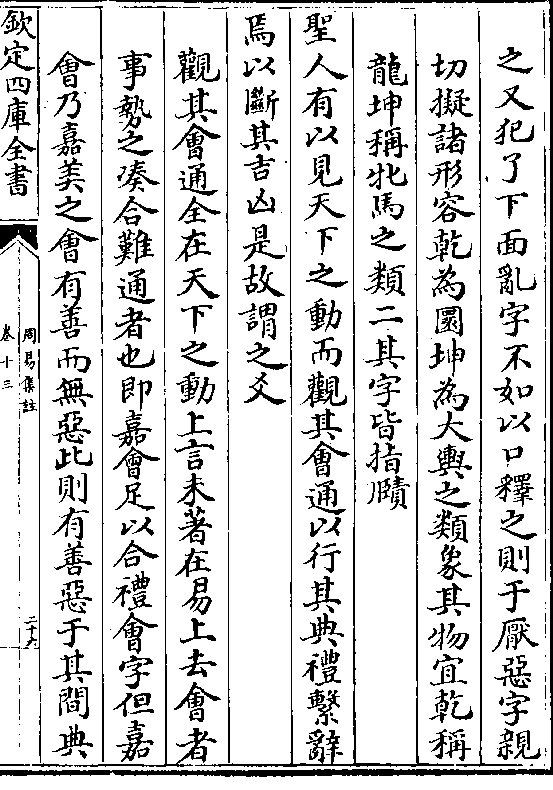 之又犯了下面亂字不如以口釋之則于厭惡字親
切擬諸形容乾為圜坤為大輿之類象其物宜乾稱
龍坤稱牝馬之類二其字皆指賾
聖人有以見天下之動而觀其會通以行其典禮繫辭
焉以斷其吉凶是故謂之爻
觀其會通全在天下之動上言未著在易上去會者
事勢之凑合難通者也即嘉會足以合禮會字但嘉
會乃嘉美之會有善而無惡此則有善惡于其間典
欽定四庫全書
周易集註
卷十三
二十六